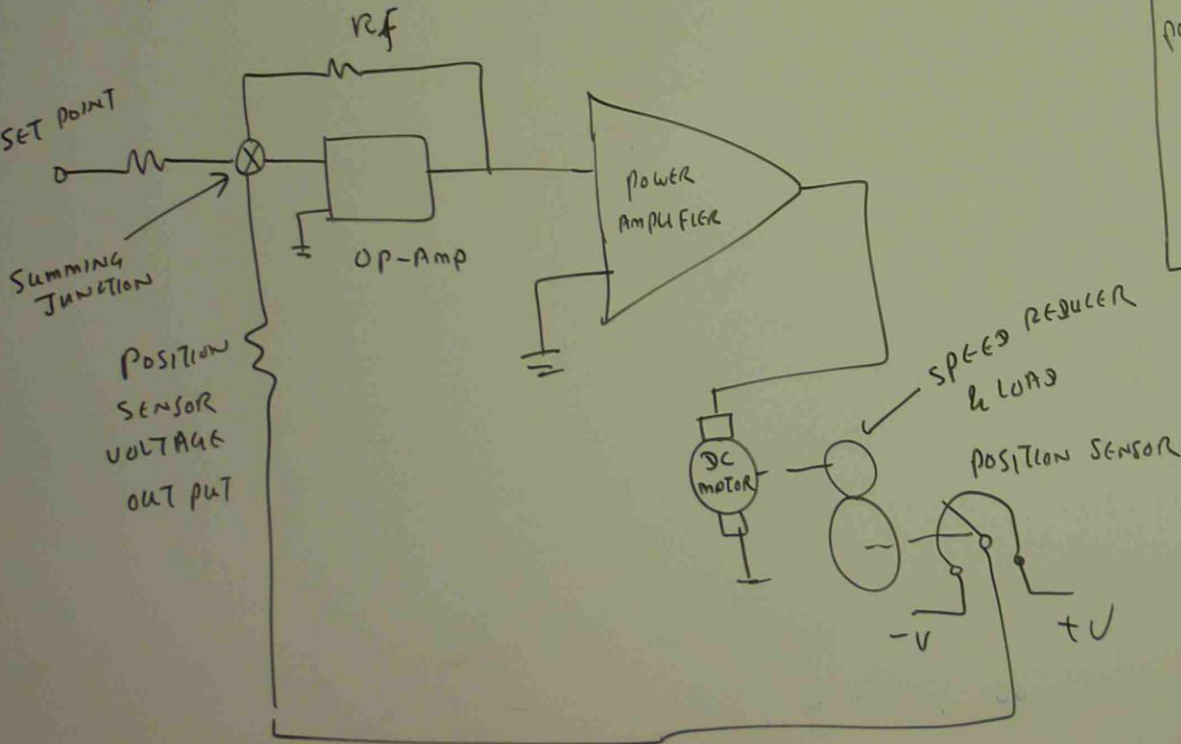 Rf
SET POINT
SUMMING
JUNCTION
OP-Amp
POWER
AMPLIFIER
POSITION
SENSOR
VOLTAGE
OUT PUT
SPEED REDUCER
& LOAD
DC
MOTOR
POSITION SENSOR
-V
+V